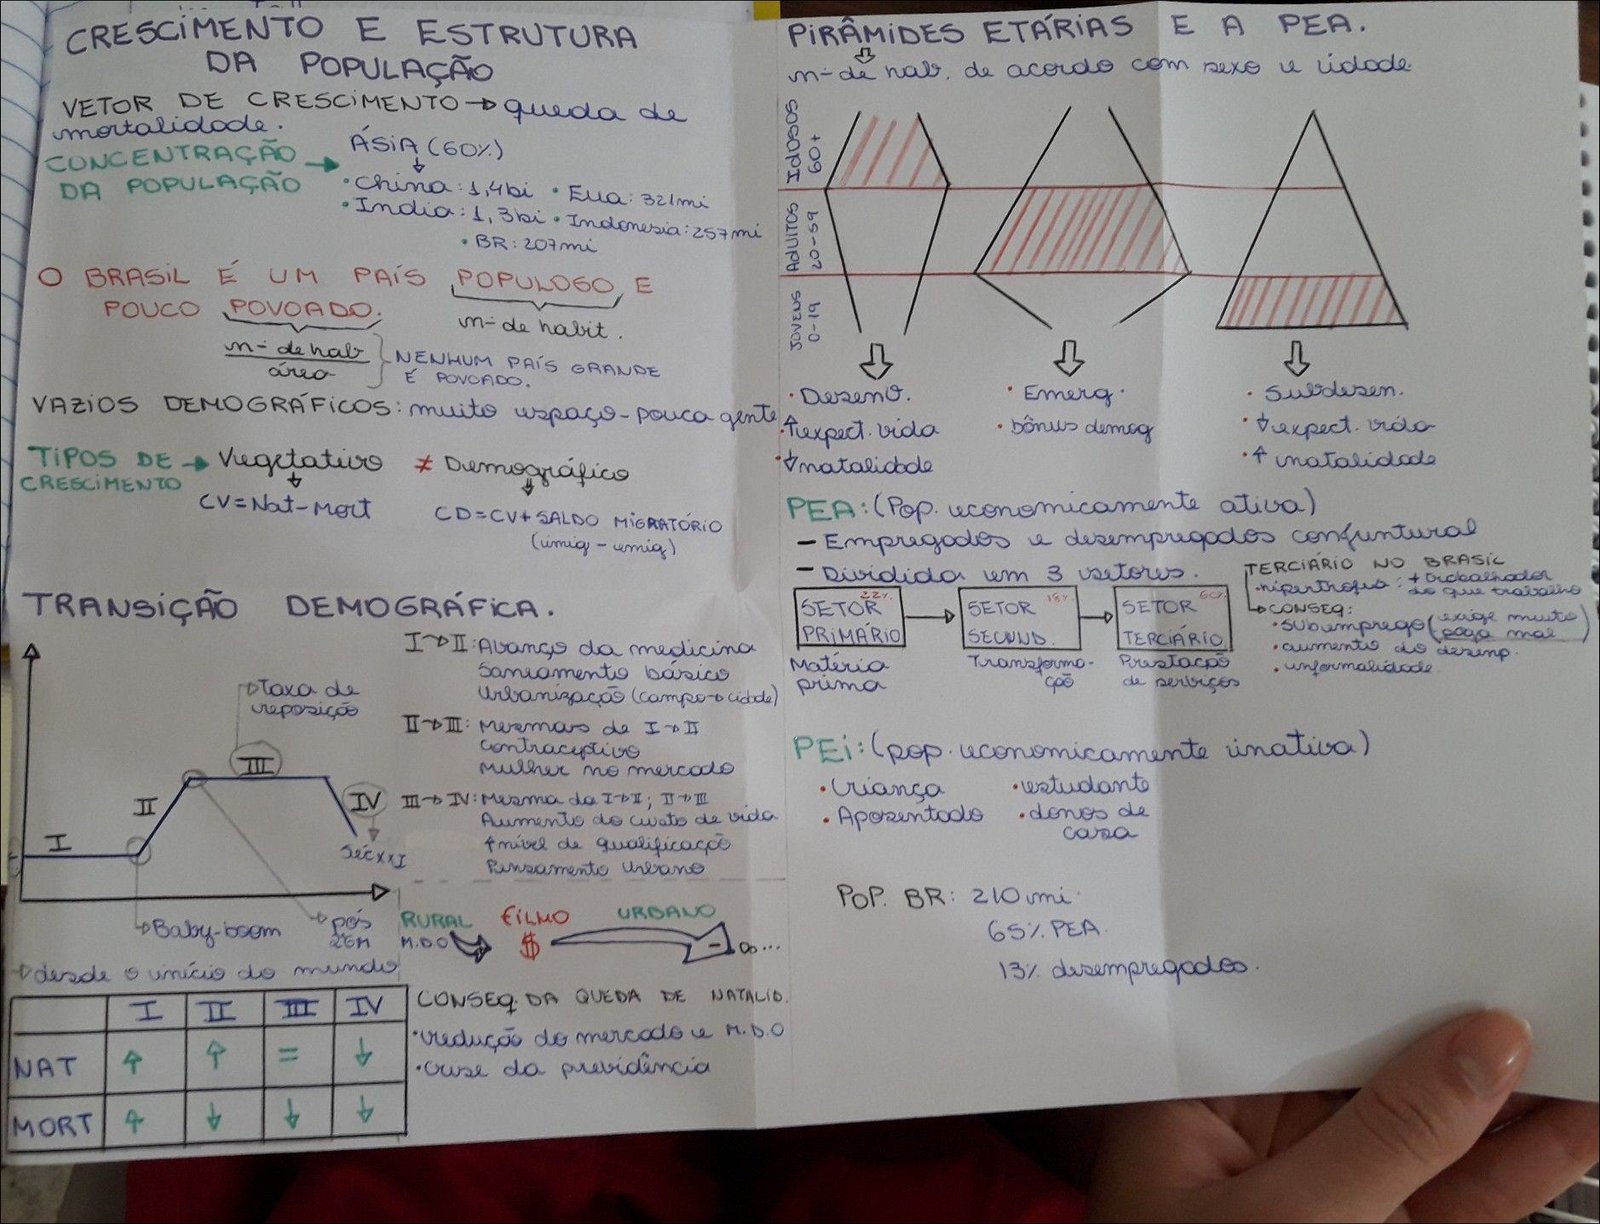 CRESCIMENTO E ESTRUTURA
DA POPULAÇÃO
VETOR DE CRESCIMENTO → queda de
mortalidade.
CONCENTRAÇÃO
DA POPULAÇÃO →
ÁSIA (60%)
• China: 1,4bi • Eua: 321mi
• India: 1,3bi • Indonesia: 257mi
• BR: 207mi
O BRASIL É UM PAÍS POPULOSO E
POUCO POVOADO.
nº de habit.
nº de hab
área
NENHUM PAÍS GRANDE
É POVOADO.
VAZIOS DEMOGRÁFICOS: muito espaço - pouca gente
TIPOS DE
CRESCIMENTO → Vegetativo ≠ Demográfico
CV = Nat - Mort
CD = CV + SALDO MIGRATÓRIO
(imig - emig)
TRANSIÇÃO DEMOGRÁFICA.
I→II: Avanço da medicina
Saneamento básico
Urbanização (campo→cidade)
II→III: Mesmas de I→II
contraceptivo
mulher no mercado
III→IV: Mesma da I→II; II→III
Aumento do custo de vida
↑nível de qualificação
Pensamento Urbano
Taxa de
reposição
I
II
III
IV
Séc XXI
Baby-boom
pós
2ºGM
RURAL FILHO URBANO
M.D.O $ - ∞...
desde o início do mundo
I II III IV
NAT ↑ ↑ = ↓
MORT ↑ ↓ ↓ ↓
CONSEQ. DA QUEDA DE NATALID.
• redução do mercado e M.D.O
• crise da previdência
PIRÂMIDES ETÁRIAS E A PEA.
nº de hab. de acordo com sexo e idade
IDOSOS
60+
ADULTOS
20-59
JOVENS
0-19
• Desenv.
• ↑expect. vida
• ↓natalidade
• Emerg.
• bônus demog
• Subdesen.
• ↓expect. vida
• ↑ natalidade
PEA: (Pop. economicamente ativa)
- Empregados e desempregados conjuntural
- Dividida em 3 setores.
SETOR 22%
PRIMÁRIO
SETOR 18%
SECUND.
SETOR 60%
TERCIÁRIO
Matéria
prima
Transforma-
ção
Prestação
de serviços
TERCIÁRIO NO BRASIL
• hipertrofia: + trabalhador
do que trabalho
CONSEQ:
• subemprego (exige muito
paga mal)
• aumento do desemp.
• informalidade
PEI: (pop. economicamente inativa)
• Criança • estudante
• Aposentado • donos de
casa
POP. BR: 210 mi
65% PEA.
13% desempregados.